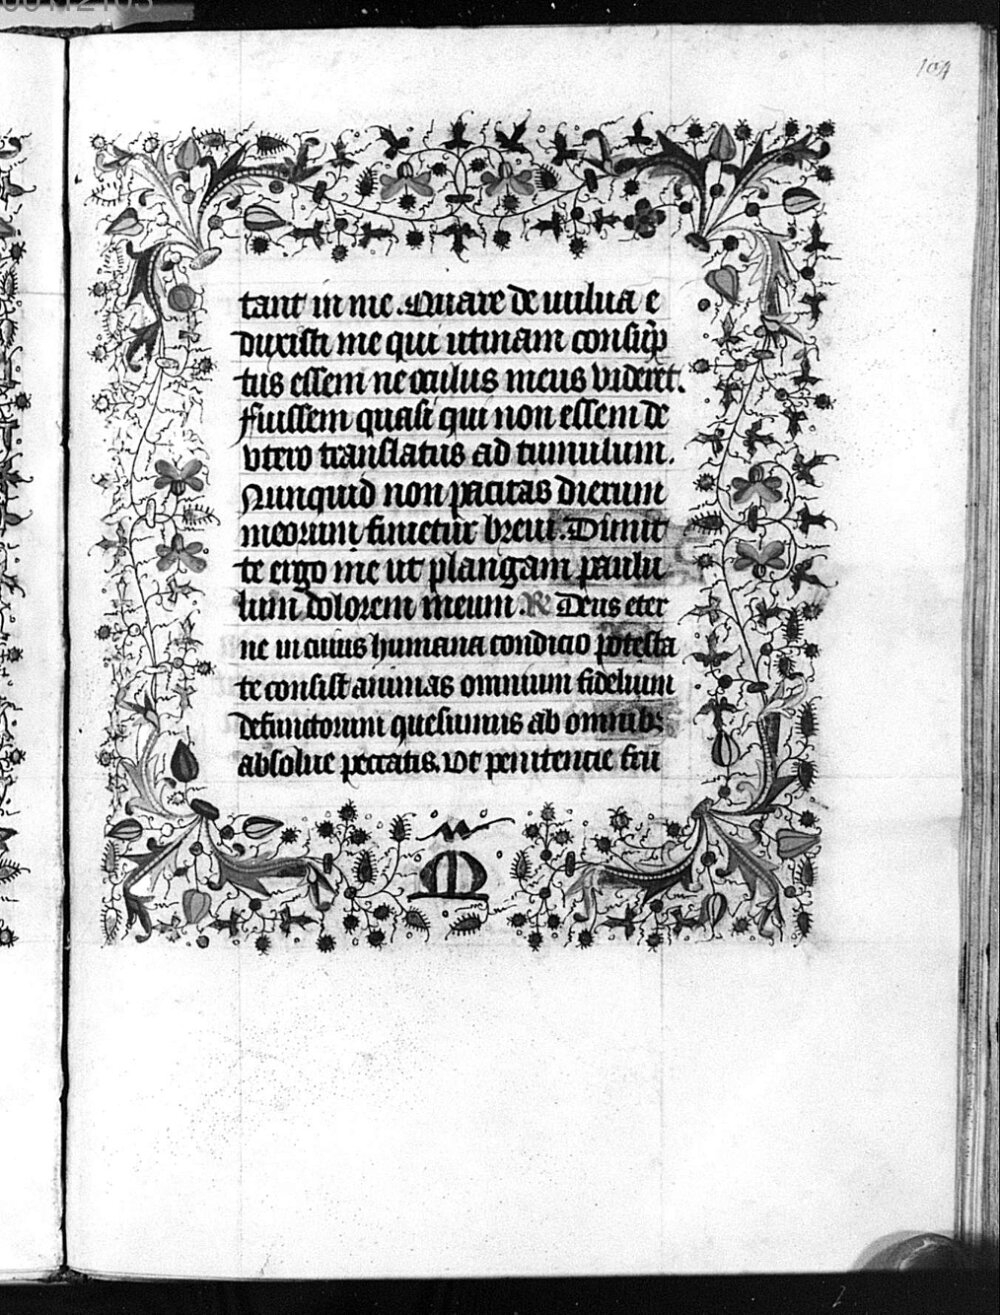 104
tant in me. Quare de uulua e
duxisti me qui utinam consūp
tus essem ne oculus meus videret.
fuissem quasi qui non essem de
vtero translatus ad tumulum.
Nunquid non pacitas dierum
meorum finietur breui. Dimit
te ergo me ut plangam paulu
lum dolorem meum. R Deus eter
ne in cuius humana condicio potesta
te consist animas omnium fidelium
defunctorum quesumus ab omnibꝫ
absolue peccatis. vt penitencie fru
M